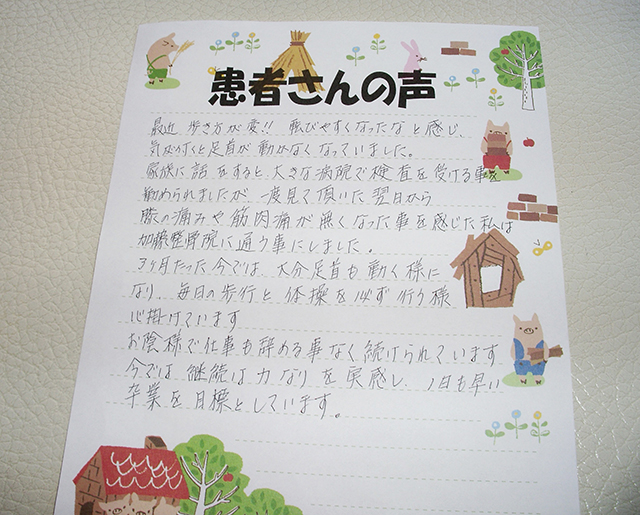 患者さんの声
最近 歩き方が変!! 転びやすくなったな と感じ、
気が付くと足首が 動かなくなっていました。
家族に 話をすると 大きな病院で 検査を受ける事を
勧められましたが、一度見て頂いた 翌日から
膝の痛みや 筋肉痛が 無くなった事を感じた私は
加藤整骨院に 通う事にしました。
3ヶ月たった今では、大分足首も 動く様に
なり、毎日の歩行と 体操を必ず 行う様
心掛けています
お陰様で 仕事も辞める事なく 続けられています
今では 継続は力なりを 実感し、1日も早い
卒業を 目標としています。